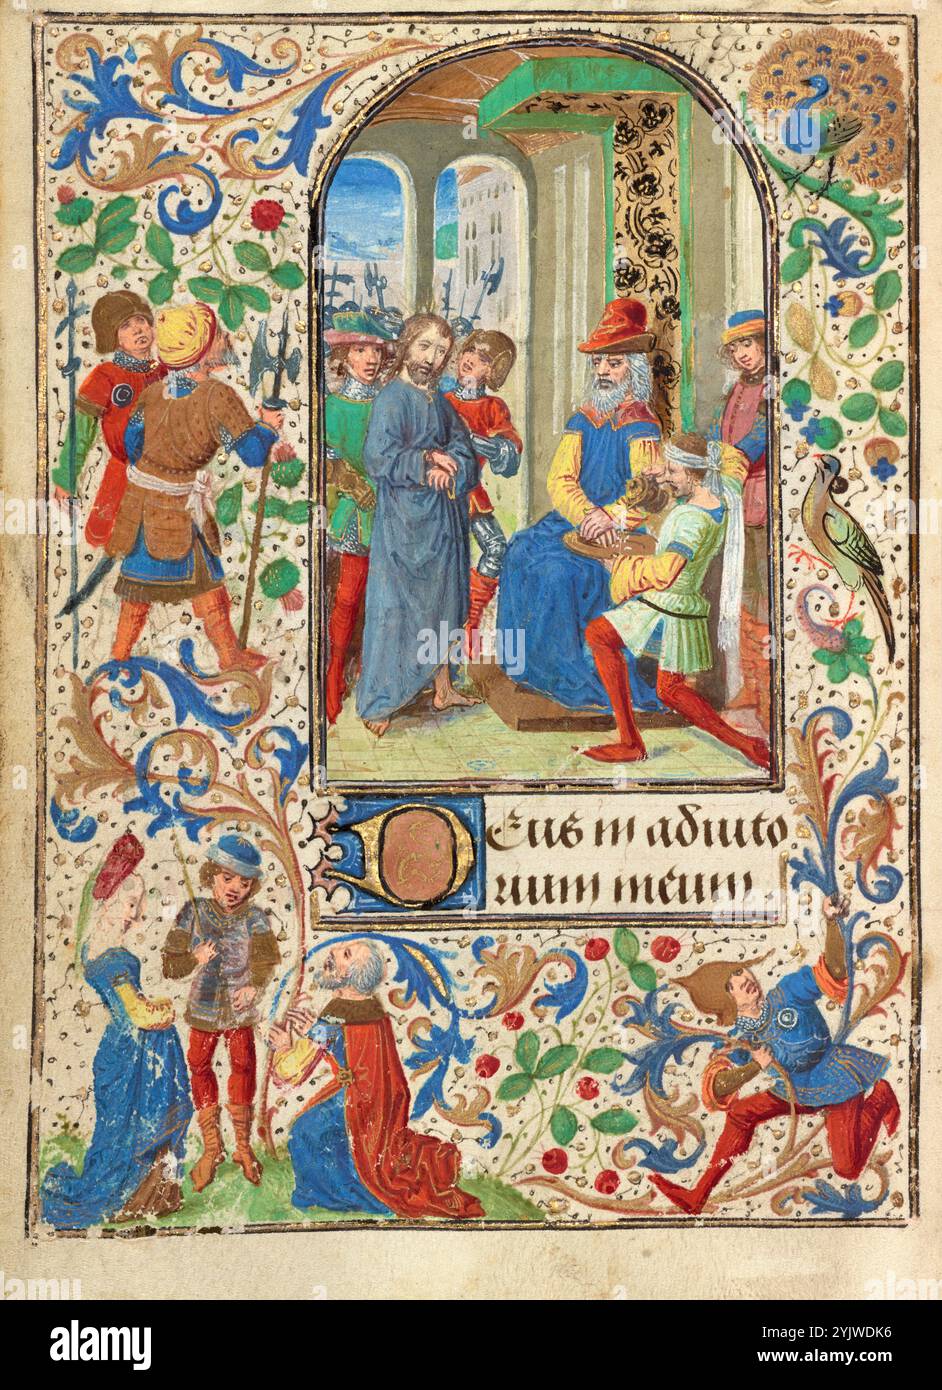 Deus in adiuto
rium meum
alamy
Image ID: 2YJWDK6
www.alamy.com